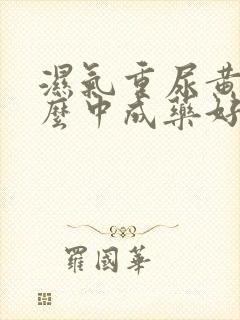 濕氣重尿黃
麼中成藥好
羅國華